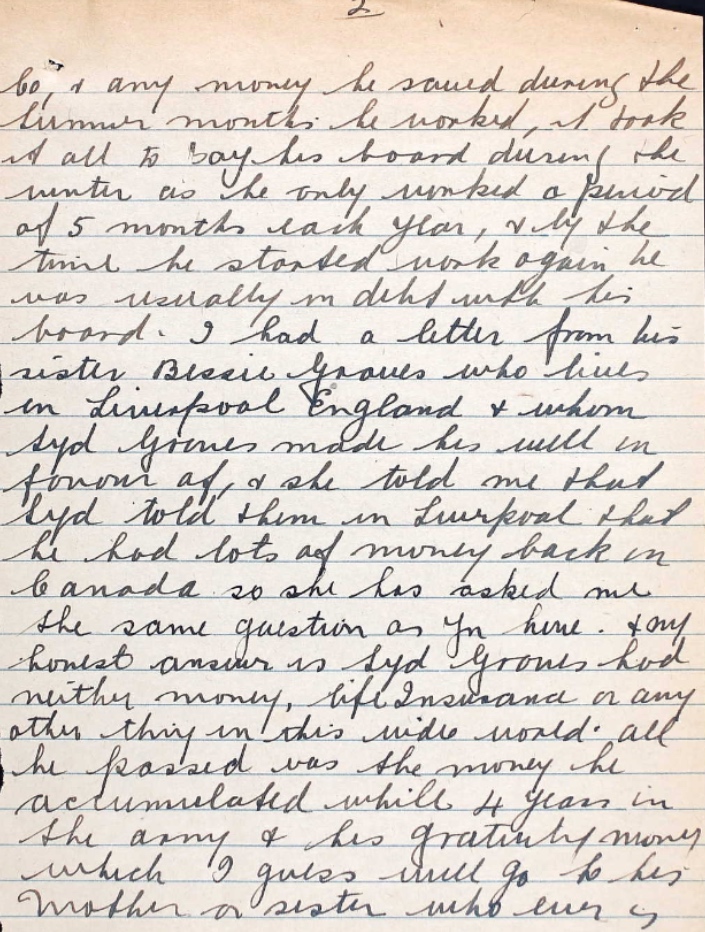 2
Co, & any money he saved during the
Summer months he worked, it took
it all to pay his board during the
winter as he only worked a period
of 5 months each year, & by the
time he started work again he
was usually in debt with his
board. I had a letter from his
sister Bessie Groves who lives
in Liverpool England & whom
Syd Groves made his will in
favour of, & she told me that
Syd told them in Liverpool that
he had lots of money back in
Canada so she has asked me
the same question as you have. & my
honest answer is Syd Groves had
neither money, life Insurance or any
other thing in this wide world. all
he possed was the money he
accumulated while 4 years in
the army & his gratuity money
which I guess will go to his
Mother or sister who ever is